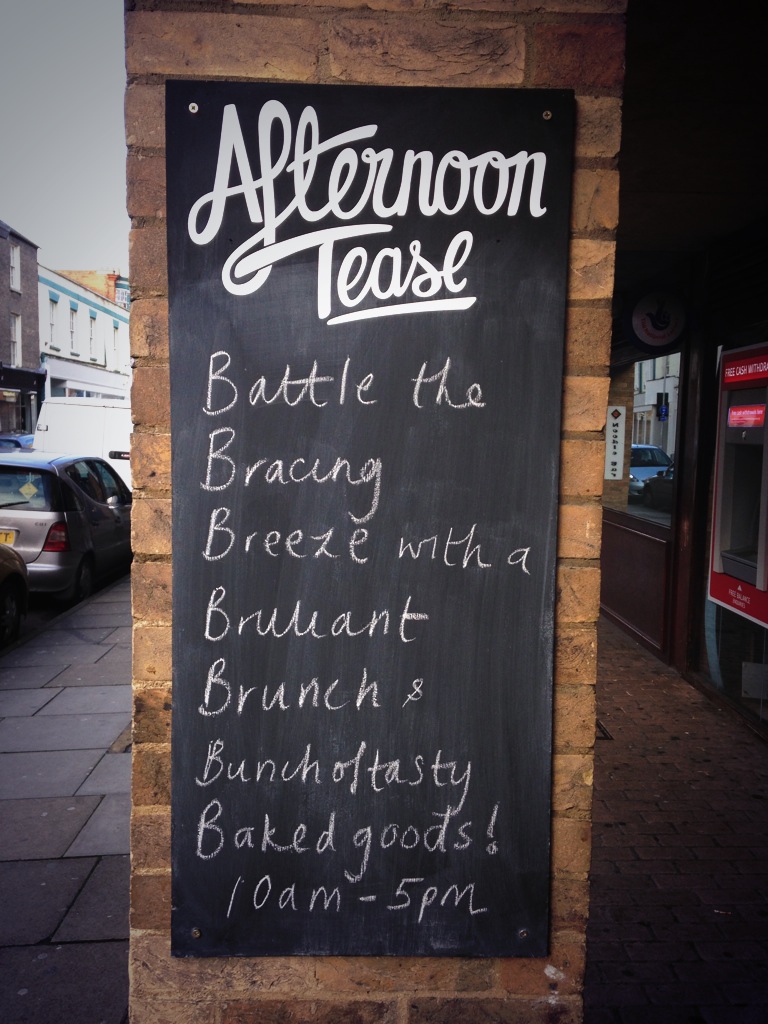 Afternoon
Tease
Battle the
Bracing
Breeze with a
Brilliant
Brunch &
Bunch of tasty
Baked goods!
10am - 5pm
FREE CASH WITHDRA
Noodle Bar
FREE BALANCE